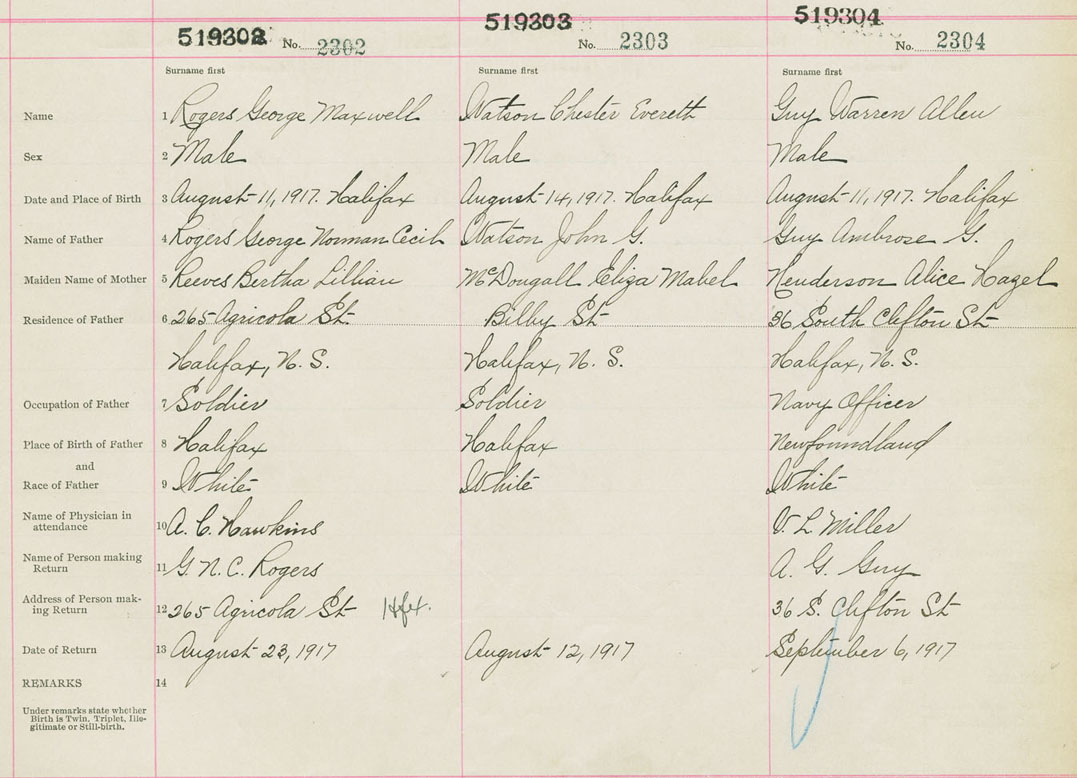 519302 No. 2302 519303 No. 2303 519304 No. 2304
Surname first Surname first Surname first
Name 1 Rogers George Maxwell Watson Chester Everett Guy Warren Allen
Sex 2 Male Male Male
Date and Place of Birth 3 August 11, 1917. Halifax August 14, 1917. Halifax August 11, 1917. Halifax
Name of Father 4 Rogers George Norman Cecil Watson John G. Guy Ambrose G.
Maiden Name of Mother 5 Reeves Bertha Lillian McDougall Eliza Mabel Henderson Alice Hazel
Residence of Father 6 265 Agricola St Bilby St 36 South Clifton St
Halifax, N. S. Halifax, N. S. Halifax, N. S.
Occupation of Father 7 Soldier Soldier Navy Officer
Place of Birth of Father 8 Halifax Halifax Newfoundland
and
Race of Father 9 White White White
Name of Physician in
attendance 10 A. C. Hawkins V. L. Miller
Name of Person making
Return 11 G. N. C. Rogers A. G. Guy
Address of Person mak-
ing Return 12 265 Agricola St Hfx. 36 S. Clifton St
Date of Return 13 August 23, 1917 August 12, 1917 September 6, 1917
REMARKS 14
Under remarks state whether
Birth is Twin, Triplet, Ille-
gitimate or Still-birth.